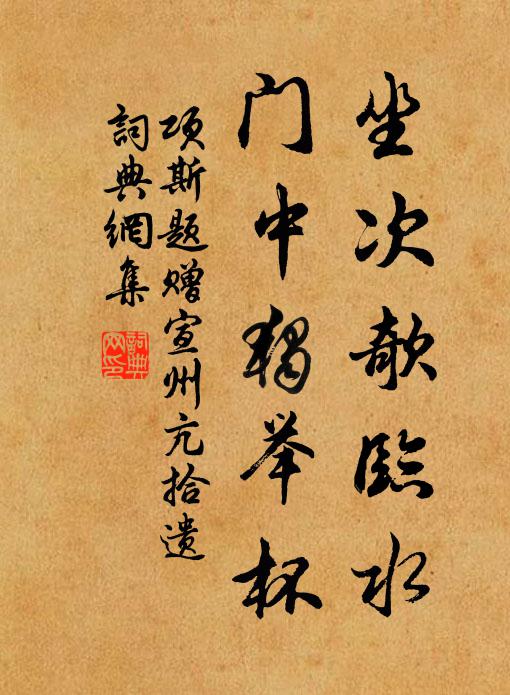 坐次欹臨水
门中獨举杯
项斯题赠宣州亢拾遗
詞典網集
詞典网印